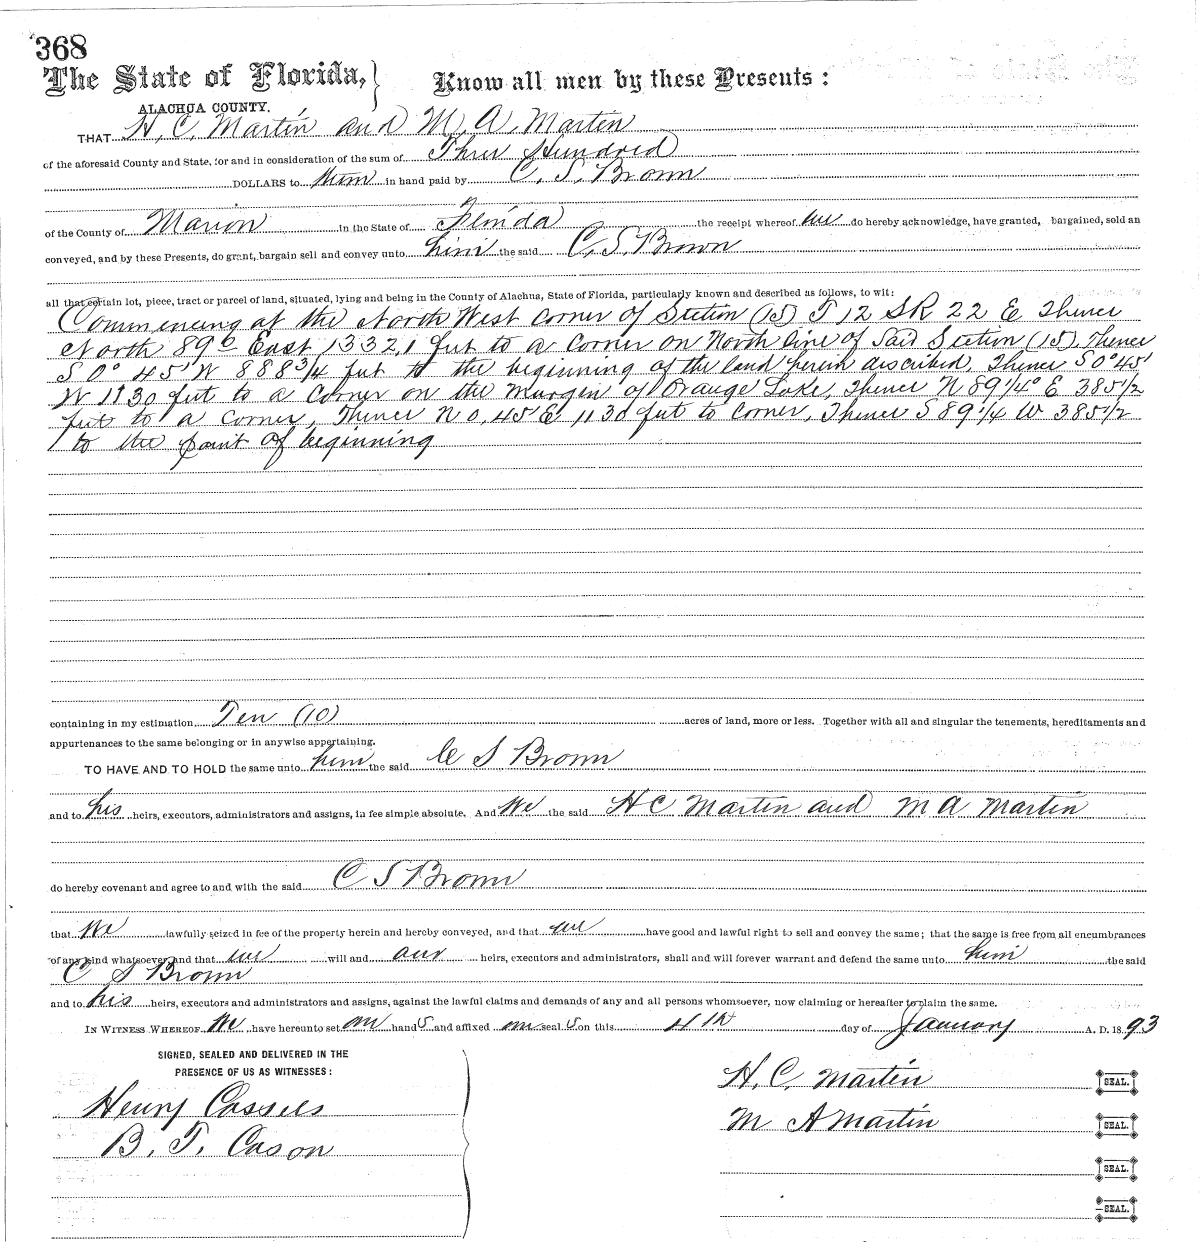 368
The State of Florida, } Know all men by these Presents :
ALACHUA COUNTY.
THAT H. C. Martin and M. A. Martin
of the aforesaid County and State, for and in consideration of the sum of Three Hundred
DOLLARS to them in hand paid by C. S. Brown
of the County of Marion in the State of Florida the receipt whereof we do hereby acknowledge, have granted, bargained, sold an
conveyed, and by these Presents, do grant, bargain sell and convey unto him the said C. S. Brown
all that certain lot, piece, tract or parcel of land, situated, lying and being in the County of Alachua, State of Florida, particularly known and described as follows, to wit:
Commencing at the North West Corner of Section (15) T 12 S R 22 E Thence
North 89° East 1332.1 feet to a Corner on North line of Said Section (15), Thence
S 0° 45' W 888 3/4 feet to the beginning of the land herein discribed, Thence S 0° 45'
W 1130 feet to a Corner on the margin of Orange Lake, Thence N 89 1/4° E 385 1/2
feet to a Corner, Thence N 0, 45 E, 1130 feet to Corner, Thence S 89 1/4 W 385 1/2
to the point of beginning
containing in my estimation Ten (10) acres of land, more or less. Together with all and singular the tenements, hereditaments and
appurtenances to the same belonging or in anywise appertaining.
TO HAVE AND TO HOLD the same unto him the said C S Brown
and to his heirs, executors, administrators and assigns, in fee simple absolute. And We the said H C Martin and M A Martin
do hereby covenant and agree to and with the said C S Brown
that We lawfully seized in fee of the property herein and hereby conveyed, and that we have good and lawful right to sell and convey the same; that the same is free from all encumbrances
of any kind whatsoever and that we will and our heirs, executors and administrators, shall and will forever warrant and defend the same unto him the said
C S Brown
and to his heirs, executors and administrators and assigns, against the lawful claims and demands of any and all persons whomsoever, now claiming or hereafter to claim the same.
IN WITNESS WHEREOF We have hereunto set our hand s and affixed our seal s on this 4th day of January A. D. 1893
SIGNED, SEALED AND DELIVERED IN THE
PRESENCE OF US AS WITNESSES:
H. C. Martin SEAL.
Henry Cassels
M A Martin SEAL.
B. T. Cason
SEAL.
SEAL.